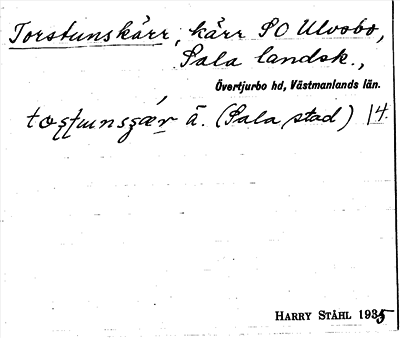 Torstunskärr, kärr SO Ulvsbo,
Sala landsk.,
Övertjurbo hd, Västmanlands län.
ä. (Sala stad) 14.
HARRY STÅHL 1935